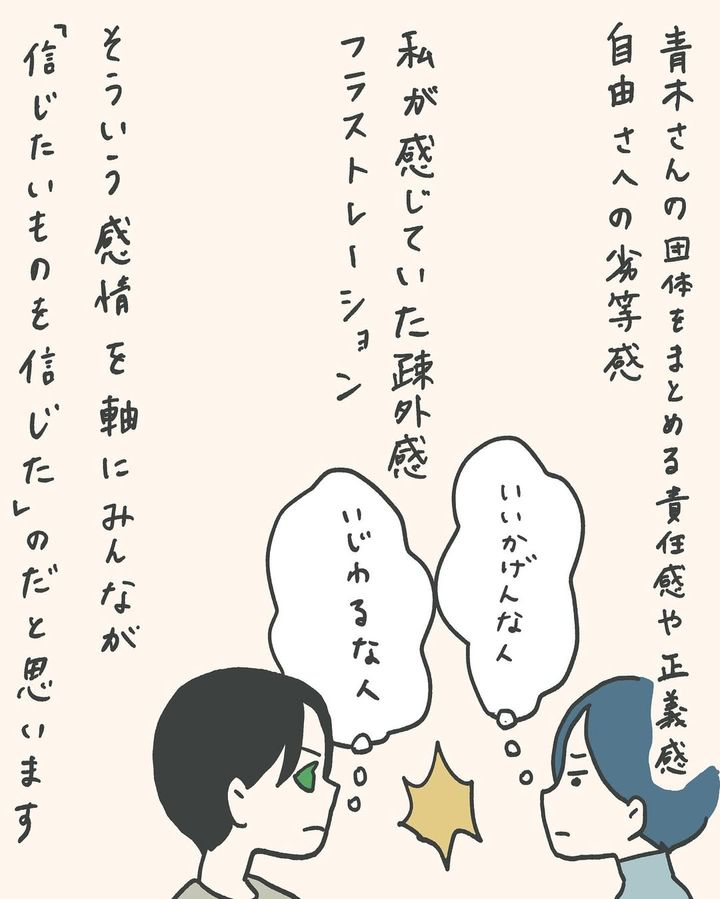 青木さんの団体をまとめる責任感や正義感
自由さへの劣等感
私が感じていた疎外感
フラストレーション
いいかげんな人
いじわるな人
そういう感情を軸にみんなが
「信じたいものを信じた」のだと思います